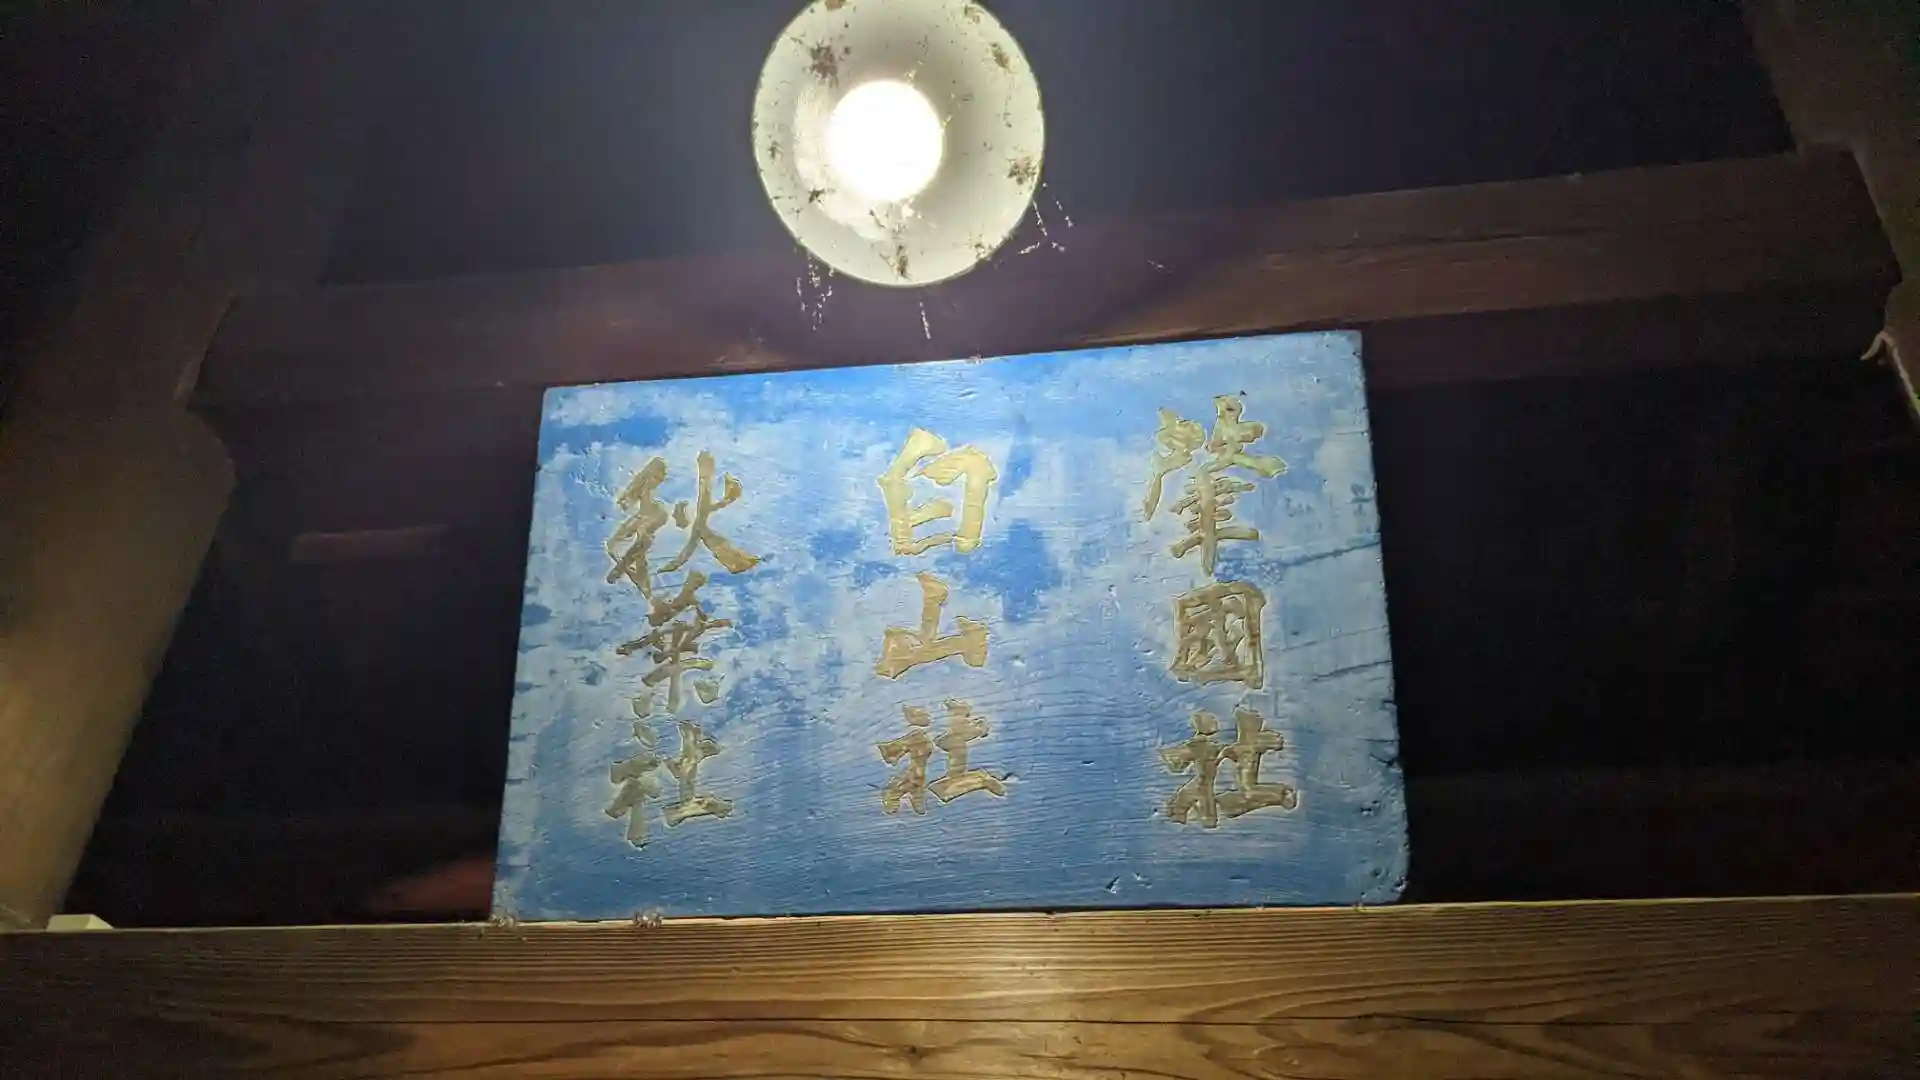 肇國社
白山社
秋葉社